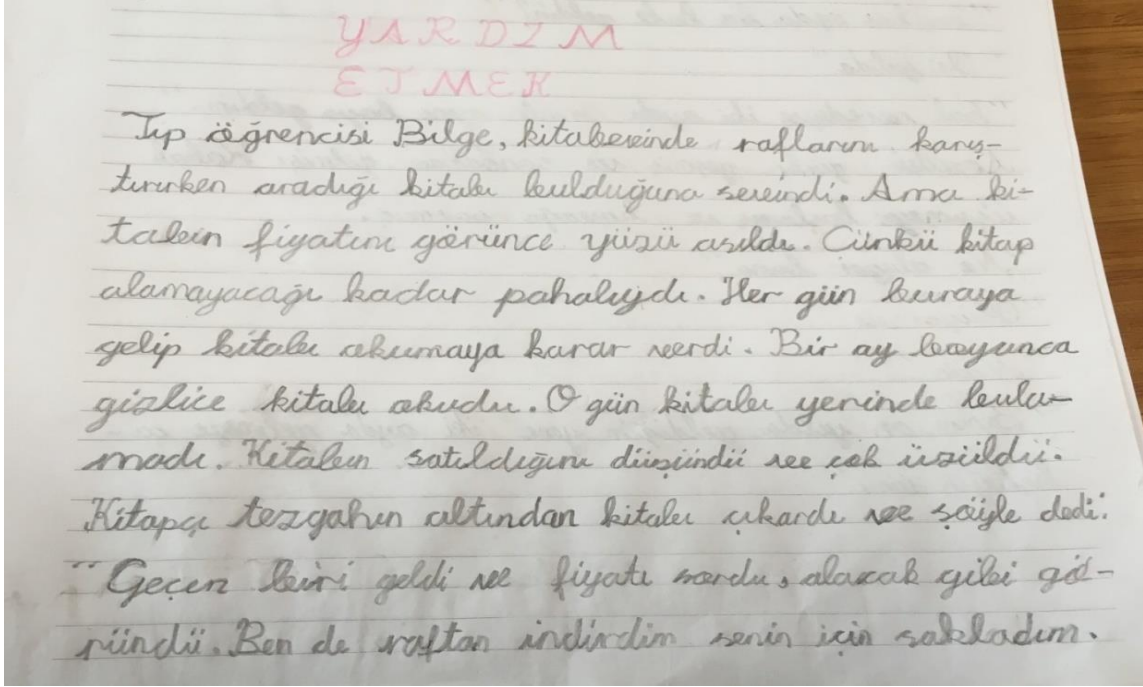 YARDIM
ETMEK
Tıp öğrencisi Bilge, kitabevinde raflarını karış-
tırırken aradığı kitabı bulduğuna sevindi. Ama ki-
tabın fiyatını görünce yüzü asıldı. Çünkü kitap
alamayacağı kadar pahalıydı. Her gün buraya
gelip kitabı okumaya karar verdi. Bir ay boyunca
gizlice kitabı okudu. O gün kitabı yerinde bula-
madı. Kitabın satıldığını düşündü ve çok üzüldü.
Kitapçı tezgahın altından kitabı çıkardı ve şöyle dedi:
"Geçen biri geldi ve fiyatı sordu, alacak gibi gö-
ründü. Ben de raftan indirdim senin için sakladım.